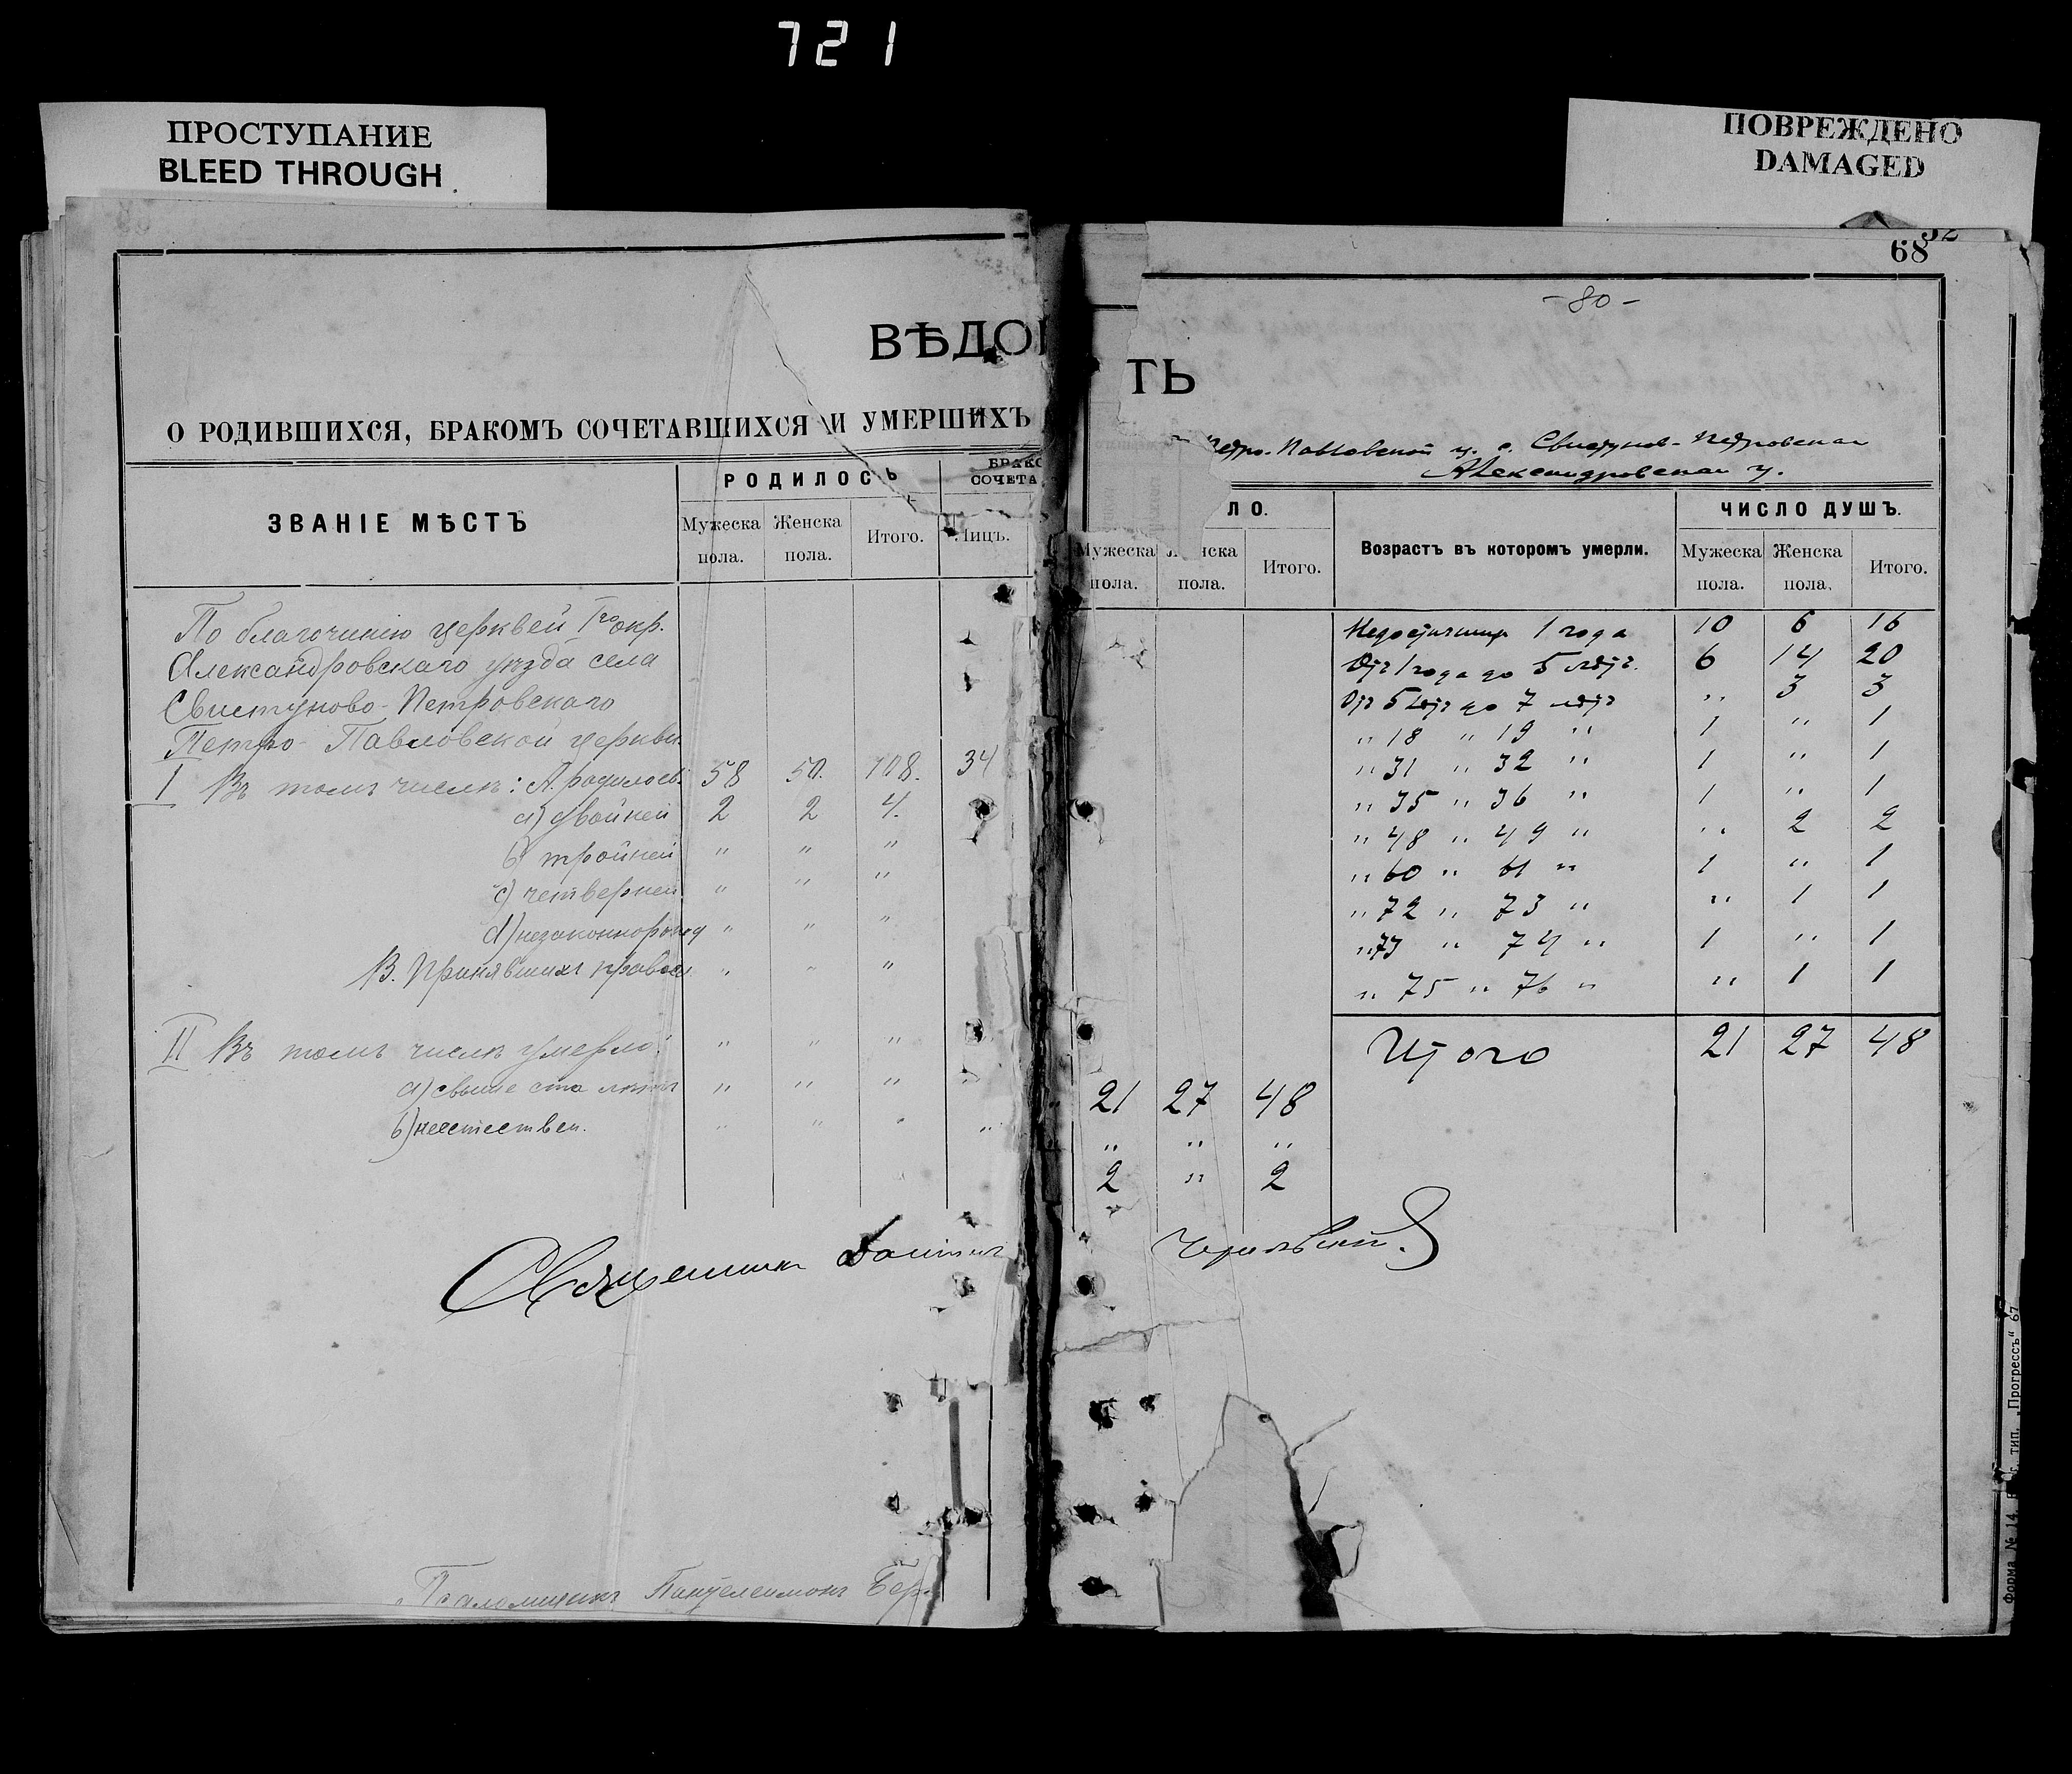 721
ПРОСТУПАНИЕ
BLEED THROUGH
ПОВРЕЖДЕНО
DAMAGED
ВѢДО
О РОДИВШИХСЯ, БРАКОМЪ СОЧЕТАВШИХСЯ И УМЕРШИХЪ
ЗВАНІЕ МѢСТЪ
РОДИЛОСЬ
БРАКО
СОЧЕТА
Мужеска пола.
Женска пола.
Итого.
Лицъ.
По благочинію церквей 1го окр.
Александровскаго уѣзда села
Свистуново-Петровскаго
Петро-Павловской церкви
I Въ томъ числѣ: А. родилось: 58 50. 108. 34
a) двойней 2 2 4.
b) тройней " " "
c) четверней " " "
d) незаконнорожд " " "
В. Принявшихъ правосл. " " "
II Въ томъ числѣ умерло: " " "
a) свыше ста лѣтъ " " " "
b) неестествен. " " " "
Священникъ
Псаломщикъ Пантелеимонъ Бер
68
- 80 -
ТЬ
Петро-Павловской ц. с. Свистунов-Петровская
Александровская у.
ЛО.
Мужеска пола.
нска пола.
Итого.
Возрастъ въ которомъ умерли.
ЧИСЛО ДУШЪ.
Мужеска пола.
Женска пола.
Итого.
Недостигши 1 года 10 6 16
Отъ 1 года до 5 лѣтъ. 6 14 20
Отъ 5 лѣтъ до 7 лѣтъ " 3 3
" 18 " 19 " 1 " 1
" 31 " 32 " 1 " 1
" 35 " 36 " 1 " 1
" 48 " 49 " " 2 2
" 60 " 61 " 1 " 1
" 72 " 73 " " 1 1
" 73 " 74 " 1 " 1
" 75 " 76 " " 1 1
Итого 21 27 48
21 27 48
" " "
2 " 2
Форма № 14.
тип. „Прогрессъ“ 67